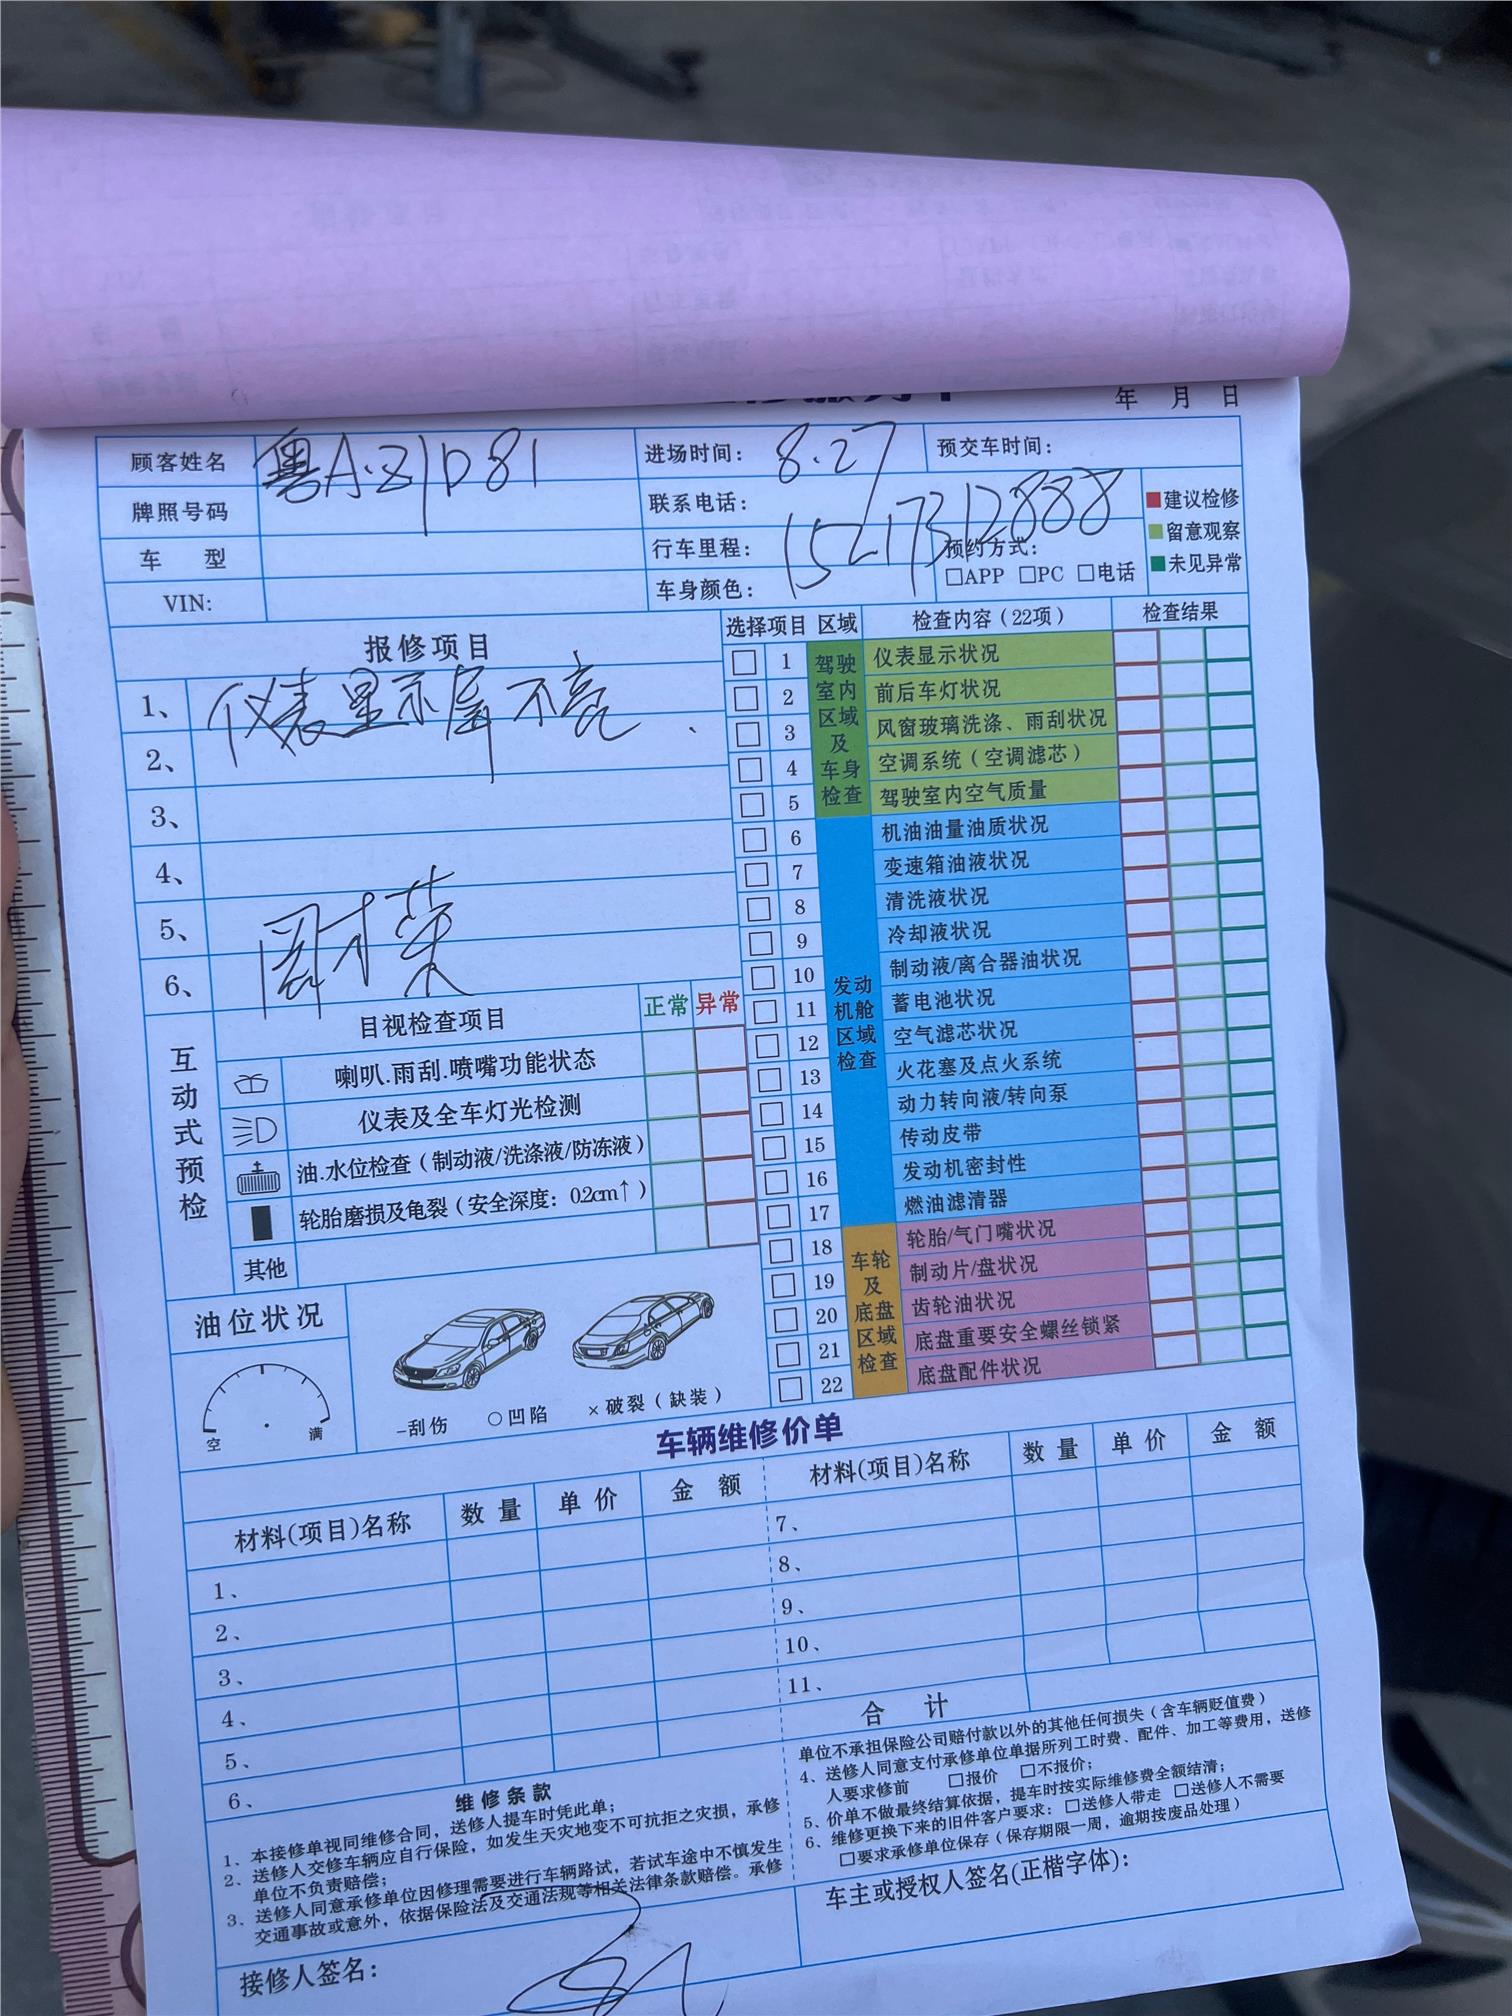 年 月 日
顾客姓名 粤A·Z1D81 进场时间: 8.27 预交车时间:
牌照号码 联系电话: 15217312888
车 型 行车里程: 预约方式:
VIN: 车身颜色: □APP □PC □电话
建议检修
留意观察
未见异常
报修项目
1、仪表显示屏不亮.
2、
3、
4、
5、
6、
周才荣
互动式预检
目视检查项目 正常 异常
喇叭.雨刮.喷嘴功能状态
仪表及全车灯光检测
油.水位检查(制动液/洗涤液/防冻液)
轮胎磨损及龟裂(安全深度: 0.2cm↑)
其他
油位状况
空 满
-刮伤 ○凹陷 ×破裂(缺装)
选择项目 区域 检查内容(22项) 检查结果
驾驶室内区域及车身检查
□ 1 仪表显示状况
□ 2 前后车灯状况
□ 3 风窗玻璃洗涤、雨刮状况
□ 4 空调系统(空调滤芯)
□ 5 驾驶室内空气质量
发动机舱区域检查
□ 6 机油油量油质状况
□ 7 变速箱油液状况
□ 8 清洗液状况
□ 9 冷却液状况
□ 10 制动液/离合器油状况
□ 11 蓄电池状况
□ 12 空气滤芯状况
□ 13 火花塞及点火系统
□ 14 动力转向液/转向泵
□ 15 传动皮带
□ 16 发动机密封性
□ 17 燃油滤清器
车轮及底盘区域检查
□ 18 轮胎/气门嘴状况
□ 19 制动片/盘状况
□ 20 齿轮油状况
□ 21 底盘重要安全螺丝锁紧
□ 22 底盘配件状况
车辆维修价单
材料(项目)名称 数量 单价 金额 材料(项目)名称 数量 单价 金额
1、
2、
3、
4、
5、
6、
7、
8、
9、
10、
11、
合 计
维修条款
1、本接修单视同维修合同，送修人提车时凭此单;
2、送修人交修车辆应自行保险，如发生天灾地变不可抗拒之灾损，承修
单位不负责赔偿;
3、送修人同意承修单位因修理需要进行车辆路试，若试车途中不慎发生
交通事故或意外，依据保险法及交通法规等相关法律条款赔偿。承修
单位不承担保险公司赔付款以外的其他任何损失(含车辆贬值费)
4、送修人同意支付承修单位单据所列工时费、配件、加工等费用，送修
人要求修前 □报价 □不报价;
5、价单不做最终结算依据，提车时按实际维修费全额结清;
6、维修更换下来的旧件客户要求: □送修人带走 □送修人不需要
□要求承修单位保存(保存期限一周，逾期按废品处理)
接修人签名:
车主或授权人签名(正楷字体):